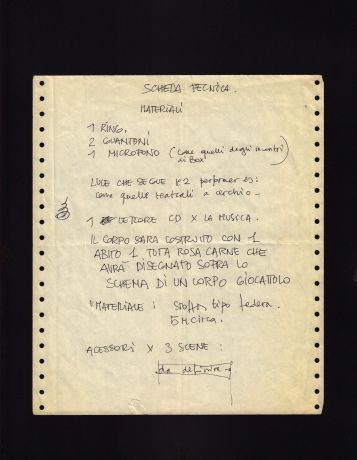 SCHEDA TECNICA.
MATERIALI
1 RING.
2 GUANTONI
1 MICROFONO (come quelli degli incontri
di Box)
LUCE CHE SEGUE I 2 performer es:
come quelle teatrali a cerchio.
1 LETTORE CD X LA MUSICA.
IL CORPO SARA COSTRUITO CON 1
ABITO 1 TUTA ROSA CARNE CHE
AVRÀ DISEGNATO SOPRA LO
SCHEMA DI UN CORPO GIOCATTOLO
"MATERIALE: Stoffa tipo federa.
5 M circa.
ACESSORI X 3 SCENE:
da definire